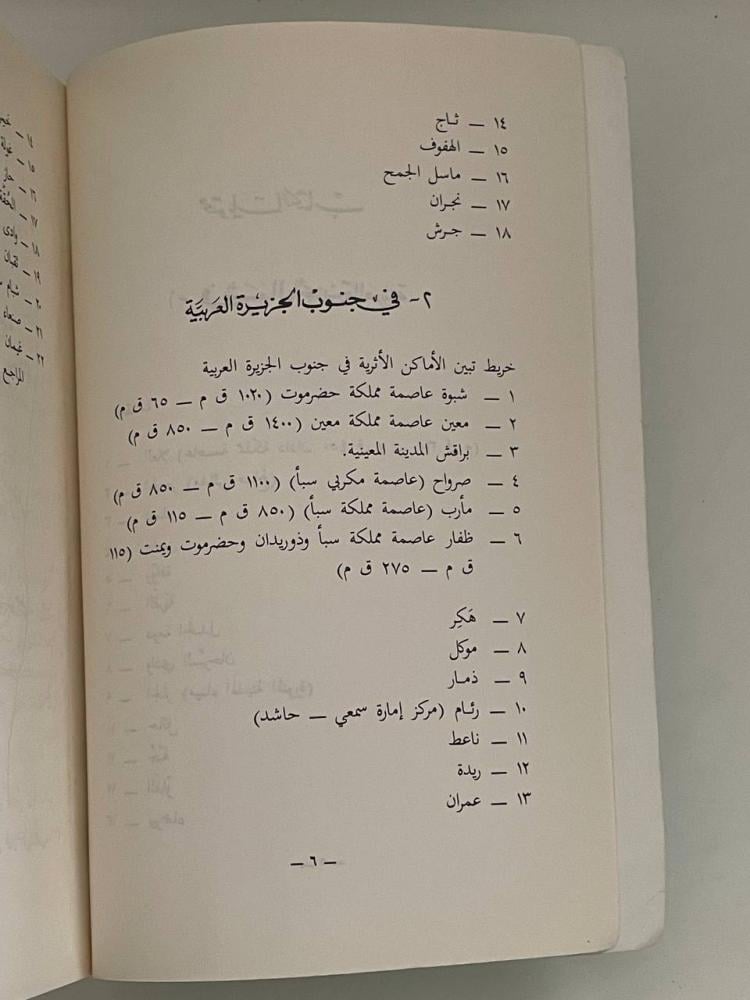 ١٤ — ثاج
١٥ — الهفوف
١٦ — ماسل الجمح
١٧ — نجران
١٨ — جرش
٢- في جنوب الجزيرة العربية
خريط تبين الأماكن الأثرية في جنوب الجزيرة العربية
١ — شبوة عاصمة مملكة حضرموت (١٠٢٠ ق م — ٦٥ ق م)
٢ — معين عاصمة مملكة معين (١٤٠٠ ق م — ٨٥٠ ق م)
٣ — براقش المدينة المعينية.
٤ — صرواح (عاصمة مكربي سبأ) (١١٠٠ ق م — ٨٥٠ ق م)
٥ — مأرب (عاصمة مملكة سبأ) (٨٥٠ ق م — ١١٥ ق م)
٦ — ظفار عاصمة مملكة سبأ وذوريدان وحضرموت ويمنت (١١٥
ق م — ٢٧٥ ق م)
٧ — هَكِر
٨ — موكل
٩ — ذمار
١٠ — رئام (مركز إمارة سمعي — حاشد)
١١ — ناعط
١٢ — ريدة
١٣ — عمران
— ٦ —
١٤ —
١٥ —
١٦ —
١٧ —
١٨ — وادى
١٩ —
٢٠ — شبام
٢١ — صنعاء
٢٢ — غيمان
المراجع